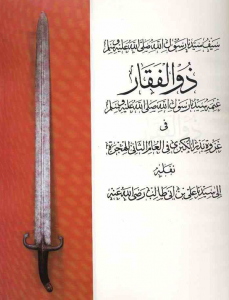 سيف سيدنا رسول الله صلى الله عليه وسلم
ذو الفقار
غنمه سيدنا رسول الله صلى الله عليه وسلم
فى
غزوة بدر الكبرى فى العام الثانى للهجرة
نقله
إلى سيدنا على بن أبى طالب رضى الله عنه